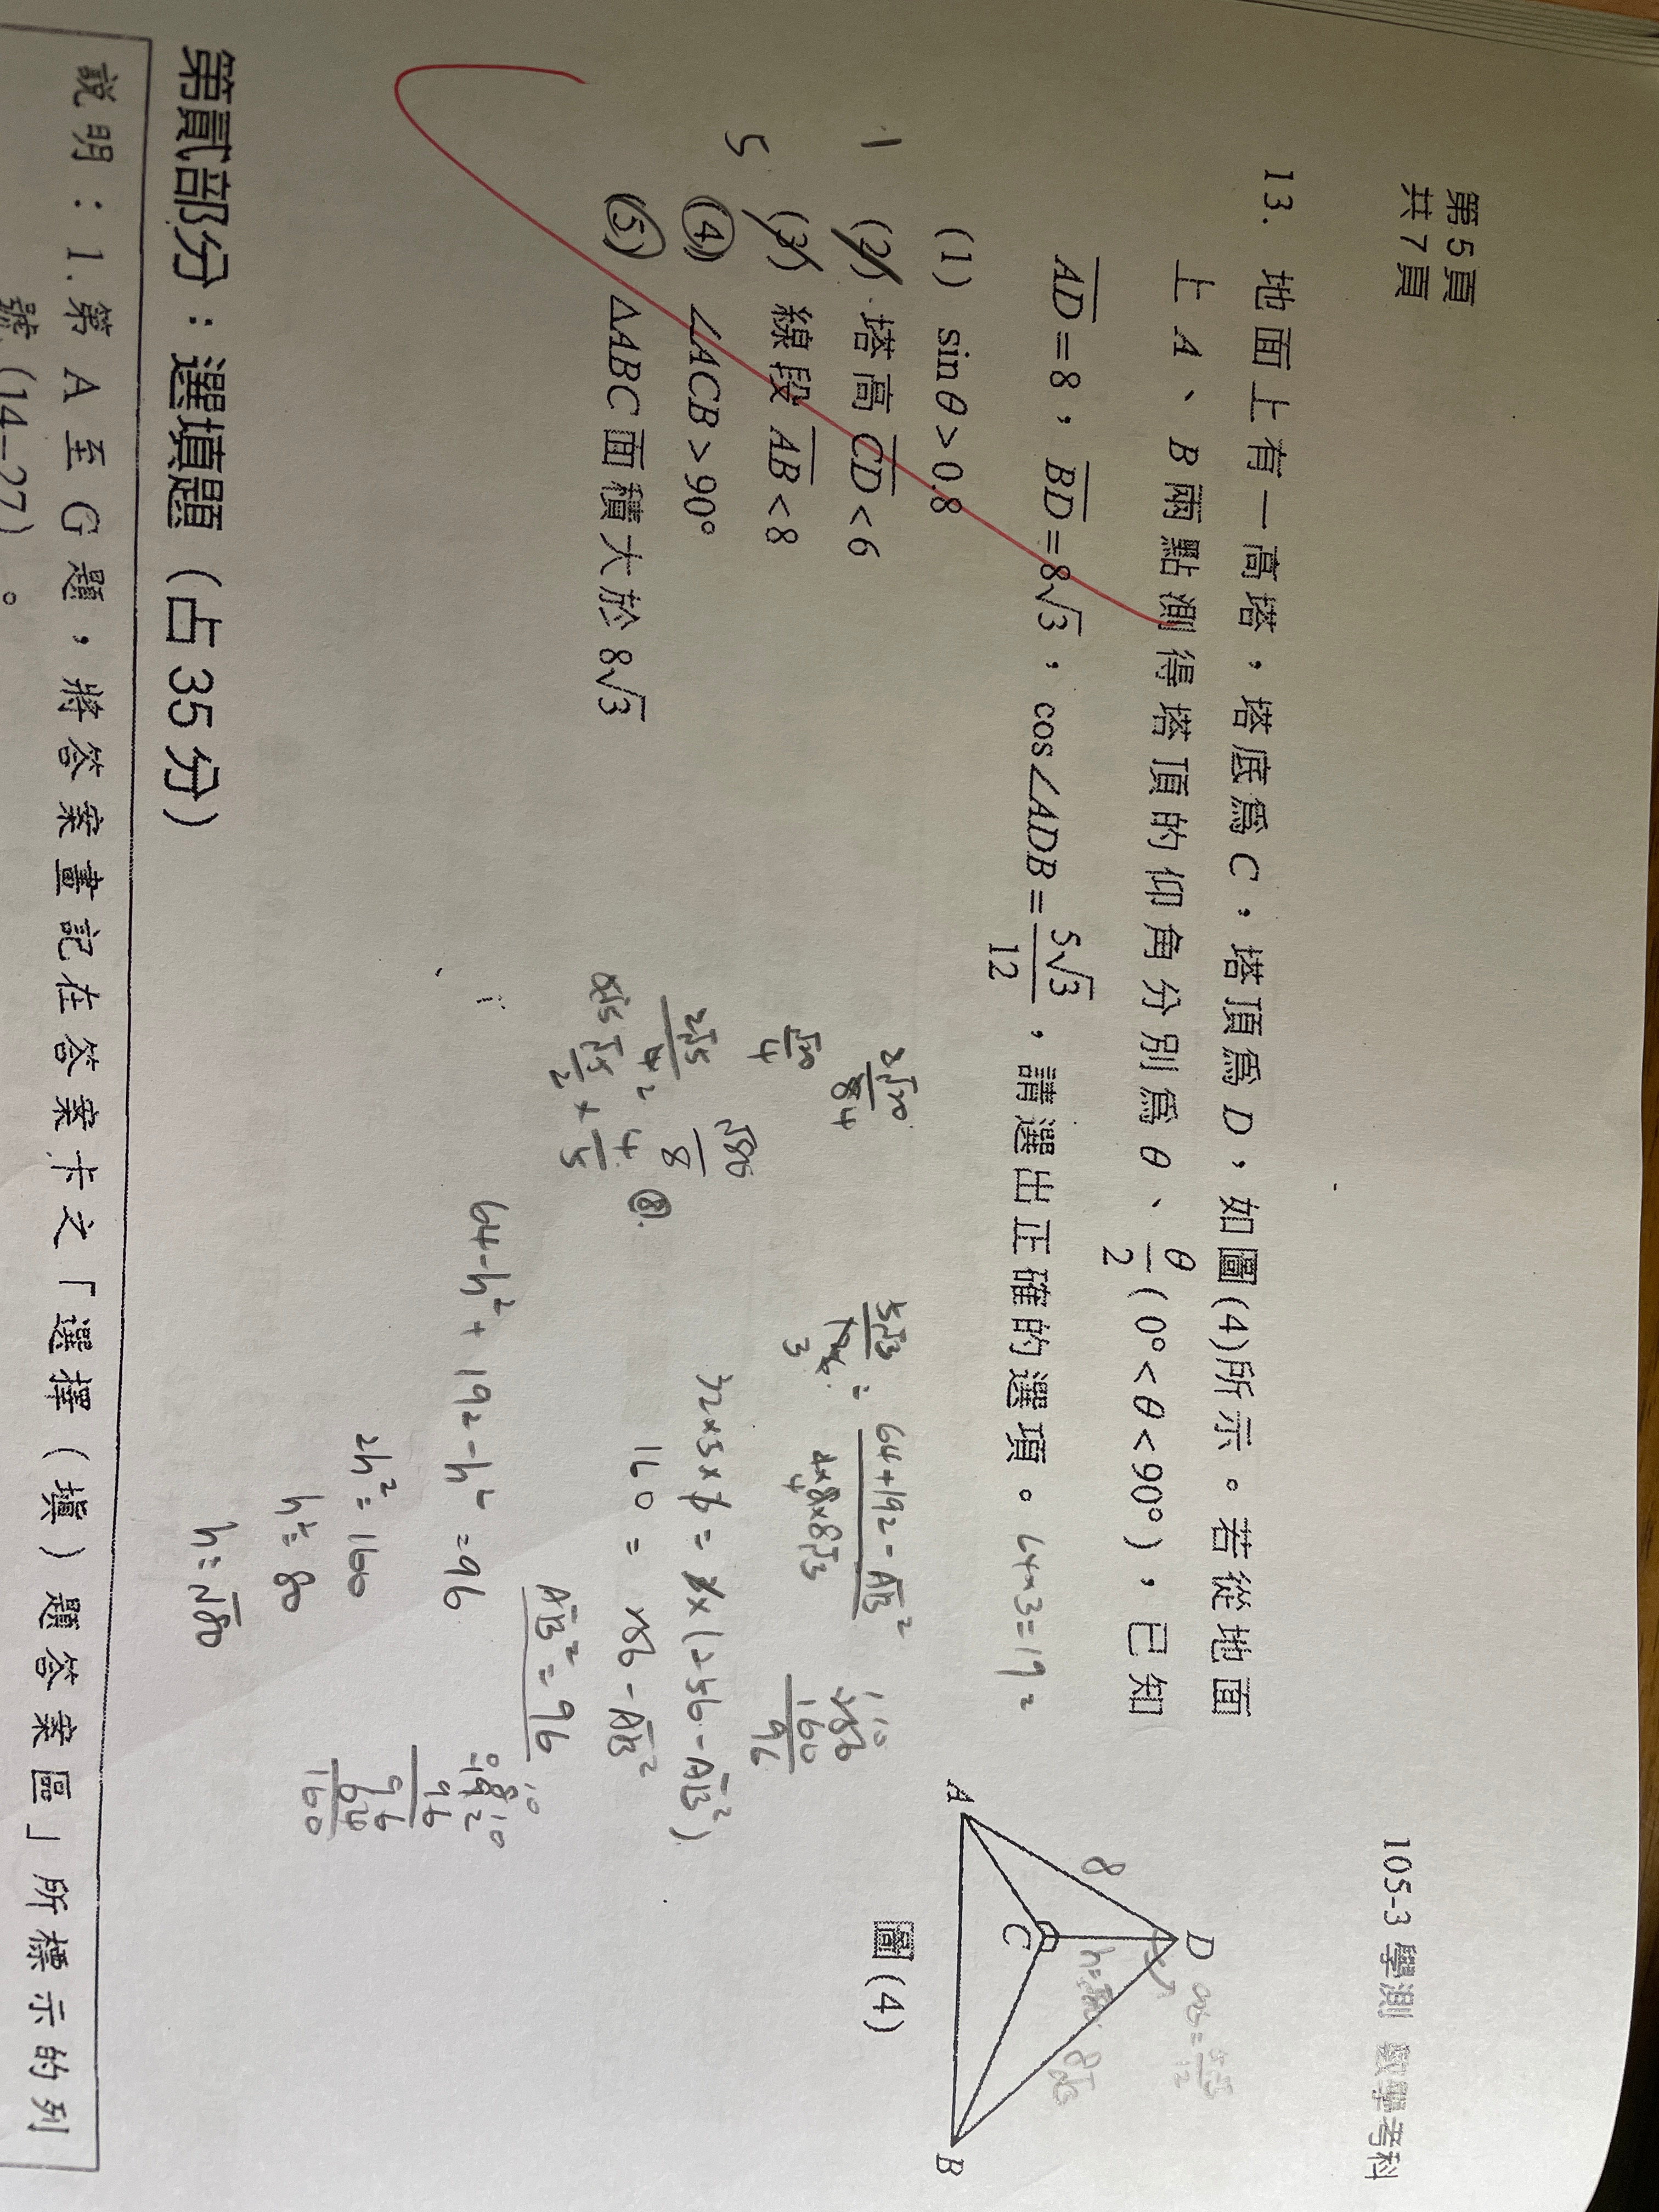 第5頁
共7頁
105-3 學測 數學考科
13. 地面上有一高塔，塔底為 C，塔頂為 D，如圖(4)所示。若從地面
上 A、B 兩點測得塔頂的仰角分別為 θ、θ/2 (0°<θ<90°)，已知
AD=8，BD=8√3，cos∠ADB=5√3/12，請選出正確的選項。 64×3=192
(1) sinθ>0.8
1 (2) 塔高 CD<6
5 (3) 線段 AB<8
(4) ∠ACB>90°
(5) △ABC面積大於 8√3
A
B
C
D
8
8√3
圖(4)
64+192-AB²
256
160
96
32×5×
160 = 256-AB²
AB²=96
64-h²+192-h²=96
2h²=160
h²=80
h=√80
96
96
64
160
√80
8
第貳部分：選填題（占35分）
說明：1.第 A 至 G 題，將答案畫記在答案卡之「選擇（填）題答案區」所標示的列
號(14-27)。